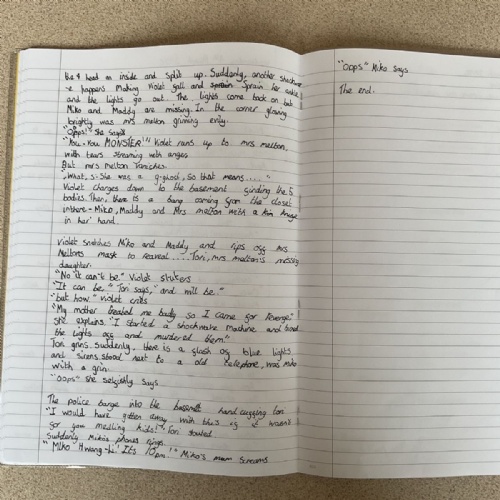 the 4 head on inside and split up. Suddenly, another shockwav
-e happens making Violet fall and sprain her ankle
and the lights go out. The lights come back on but
Miko and Maddy are missing. In the corner glowing
brightly was mrs melton grinning evily.
"Opps!" she says
"You- You MONSTER!" Violet runs up to mrs melton,
with tears streaming with anger.
But mrs melton vanishes.
"What, s-she was a g-ghost, so that means...."
Violet charges down to the basement finding the 5
bodies. Then, there is a bang coming from the closet
inthere- Miko, Maddy and Mrs melton with a knife
in her hand.
Violet snatches Miko and Maddy and rips off mrs
Meltons mask to reaveal.... Tori, mrs melton's missing
daughter.
"No it can't be." Violet stutters
"It can be." Tori says, "and will be."
"but how." Violet cries
"My mother treated me badly so I came for revenge"
She explains. "I started a shockwave machine and turned
the lights off and murdered them."
Tori grins. Suddenly, there is a flash of blue lights
and sirens. stood next to a old telephone, was miko
with a grin.
"Oops" she selfishly says
The police barge into the basement hand cuffing Tori
"I would have gotten away with this if it wasn't
for you medling kids!" Tori shouted
Suddenly Miko's phones rings
"MIKO Hwang- It's 10pm!" Miko's mom screams.
"Oops" Miko says
The end.